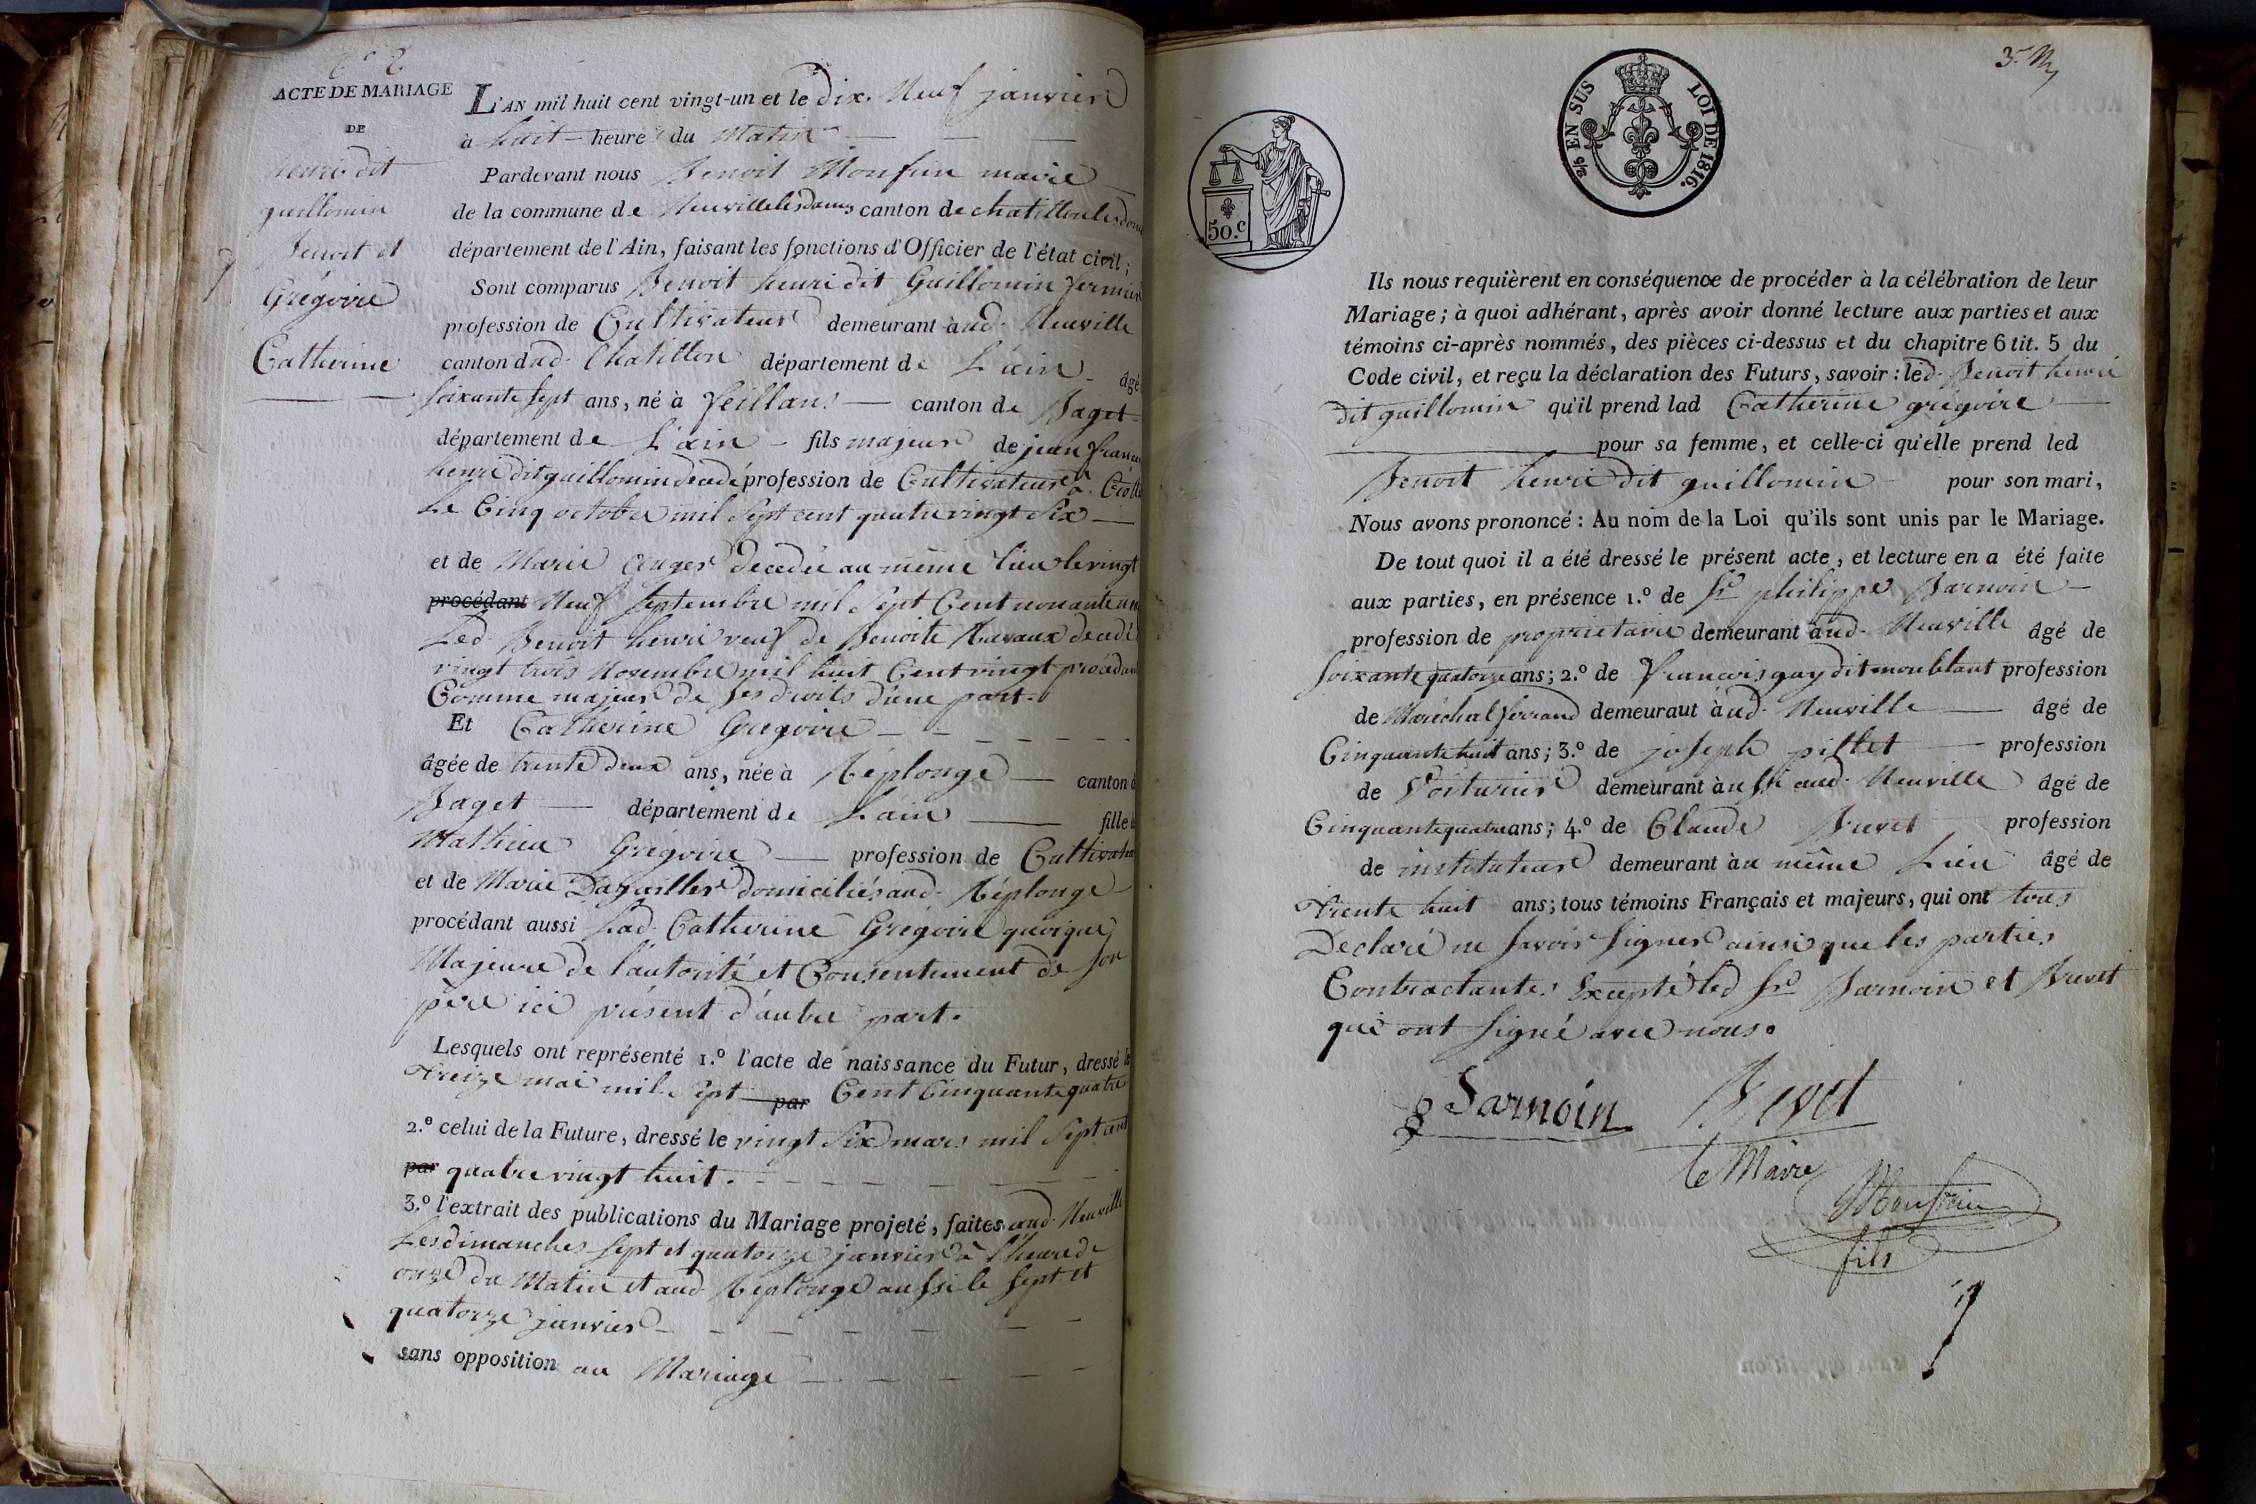 ACTE DE MARIAGE
DE
henri dit
guillomin
Benoit et
Grégoire
Catherine
L'AN mil huit cent vingt-un et le dix Neuf janvier
à huit heure s du Matin
Pardevant nous Benoit Monfrin maire
de la commune de Neuville les Dames canton de chatillon les dom
département de l'Ain, faisant les fonctions d'Officier de l'état civil ;
Sont comparus Benoit henri dit Guillomin fermier
profession de Cultivateur demeurant à ud. Neuville
canton dud. Chatillon département de L'ain âgé
Soixante Sept ans, né à feillans canton de Baget
département de L'ain fils majeur de jean francois
henri dit guillomin decedé profession de Cultivateur à Crott
Le Cinq octobre mil Sept cent quatre vingt Six
et de Marie decedée au même lieu le vingt
procédant Neuf Septembre mil Sept Cent nonante
Led. Benoit henri veuf de Benoite Ravaux decedé
vingt trois Novembre mil huit Cent vingt procédant
Comme majeur de Ses droits d'une part.
Et Catherine Gregoire
âgée de trente deux ans, née à Replonge canton d
Baget département de L'ain fille d
Mathieu Grégoire profession de Cultivateu
et de Marie Dagallier domiciliés aud. Replonge
procédant aussi lad. Catherine Grégoire quoique
Majeure de l'autorité et Consentement de Son
père ici présent d'autre part.
Lesquels ont représenté 1.º l'acte de naissance du Futur, dressé le
treize mai mil Sept par Cent Cinquante quatre
2.º celui de la Future, dressé le vingt Six mars mil Sept cent
par quatre vingt huit.
3.º l'extrait des publications du Mariage projeté, faites aud. Neuville
Les dimanches Sept et quatorze janvier à l'heure de
onze du Matin et aud. Replonge aussi le Sept et
quatorze janvier
sans opposition au Mariage
2/5 EN SUS LOI DE 1816.
50.c
Ils nous requièrent en conséquence de procéder à la célébration de leur
Mariage ; à quoi adhérant, après avoir donné lecture aux parties et aux
témoins ci-après nommés, des pièces ci-dessus et du chapitre 6 tit. 5 du
Code civil, et reçu la déclaration des Futurs, savoir : led. Benoit henri
dit guillomin qu'il prend lad Catherine grégoire
pour sa femme, et celle-ci qu'elle prend led
Benoit henri dit guillomin pour son mari,
Nous avons prononcé : Au nom de la Loi qu'ils sont unis par le Mariage.
De tout quoi il a été dressé le présent acte, et lecture en a été faite
aux parties, en présence 1.º de Sr. philippe Sarnoin
profession de proprietaire demeurant à ud. Neuville âgé de
Soixante quatorze ans ; 2.º de francois guy dit monblant profession
de Maréchal ferrand demeuraut à ud. Neuville âgé de
Cinquante huit ans ; 3.º de joseph pillet profession
de Voiturier demeurant à ussi aud. Neuville âgé de
Cinquante quatre ans ; 4.º de Claude Buvet profession
de instituteur demeurant à u même Lieu âgé de
trente huit ans ; tous témoins Français et majeurs, qui ont tous
Declaré ne Savoir Signer ainsi que les parties
Contractantes Excepté led Sr. Sarnoin et Buvet
qui ont Signé avec nous.
Sarnoin
Le Maire
Monfrin
fils